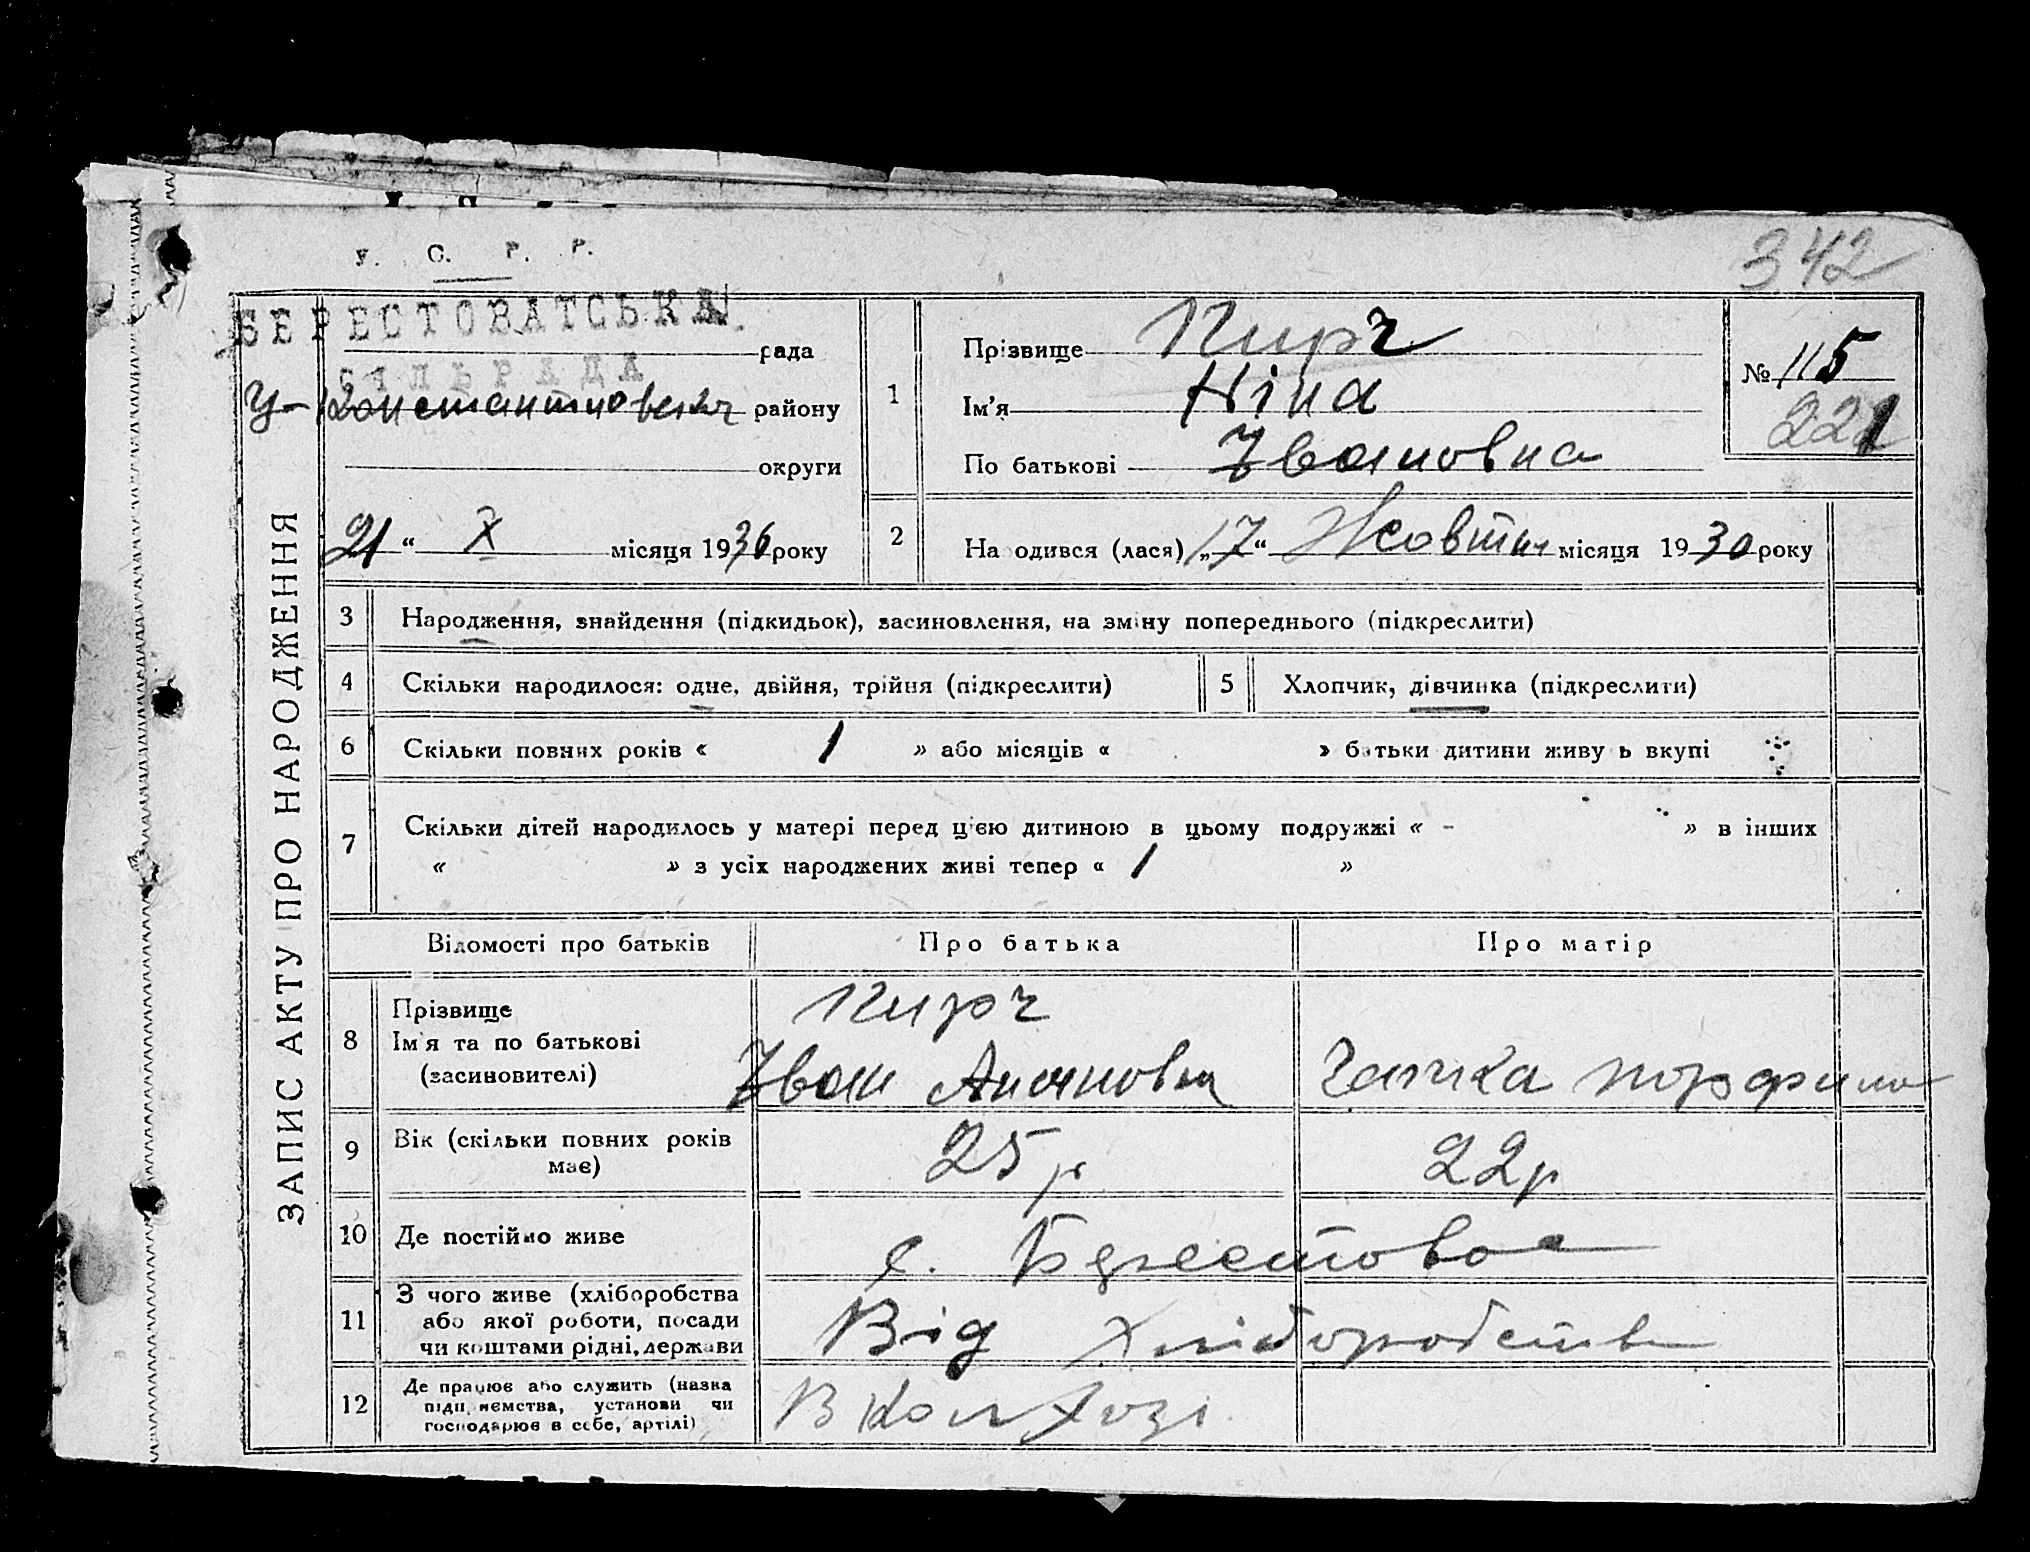 342
У. С. Р. Р.
БЕРЕСТОВАТСЬКА
рада
СІЛЬРАДА
району
округи
21 " X місяця 1930 року
ЗАПИС АКТУ ПРО НАРОДЖЕННЯ
1
Прізвище Кирч
Ім'я Ніна
По батькові Івановна
№ 115
221
2
На одився (лася) „17“ Жовтня місяця 1930 року
3 Народження, знайдення (підкидьок), засиновлення, на зміну попереднього (підкреслити)
4 Скільки народилося: одне, двійня, трійня (підкреслити)
5 Хлопчик, дівчинка (підкреслити)
6 Скільки повних років « 1 » або місяців « » батьки дитини живу ь вкупі
7 Скільки дітей народилось у матері перед цією дитиною в цьому подружжі « - » в інших
« » з усіх народжених живі тепер « 1 »
Відомості про батьків Про батька Про матір
8 Прізвище
Ім'я та по батькові
(засиновителі)
Кирч
Іван
9 Вік (скільки повних років
має)
25 р 22 р
10 Де постійно живе
с. Берестова
11 З чого живе (хліборобства
або якої роботи, посади
чи коштами рідні, держави
Від Хліборобств
12 Де працює або служить (назва
підп иємства, установи чи
господарює в себе, артілі)
В Колхозі